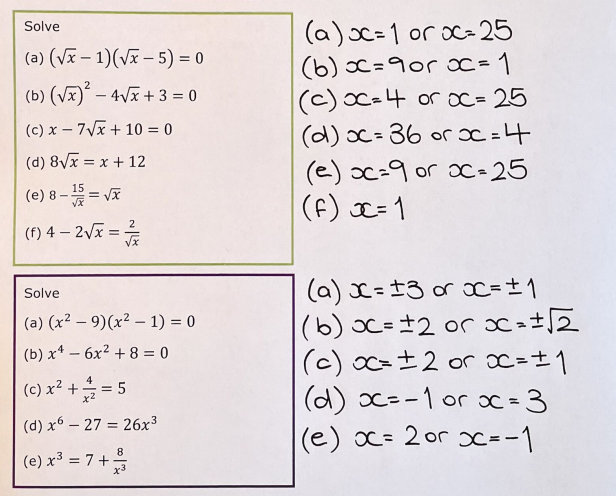 Solve
(a) (√x − 1)(√x − 5) = 0
(b) (√x)² − 4√x + 3 = 0
(c) x − 7√x + 10 = 0
(d) 8√x = x + 12
(e) 8 − 15/√x = √x
(f) 4 − 2√x = 2/√x
(a) x=1 or x=25
(b) x=9 or x=1
(c) x=4 or x=25
(d) x=36 or x=4
(e) x=9 or x=25
(f) x=1
Solve
(a) (x² − 9)(x² − 1) = 0
(b) x⁴ − 6x² + 8 = 0
(c) x² + 4/x² = 5
(d) x⁶ − 27 = 26x³
(e) x³ = 7 + 8/x³
(a) x=±3 or x=±1
(b) x=±2 or x=±√2
(c) x=±2 or x=±1
(d) x=-1 or x=3
(e) x=2 or x=-1